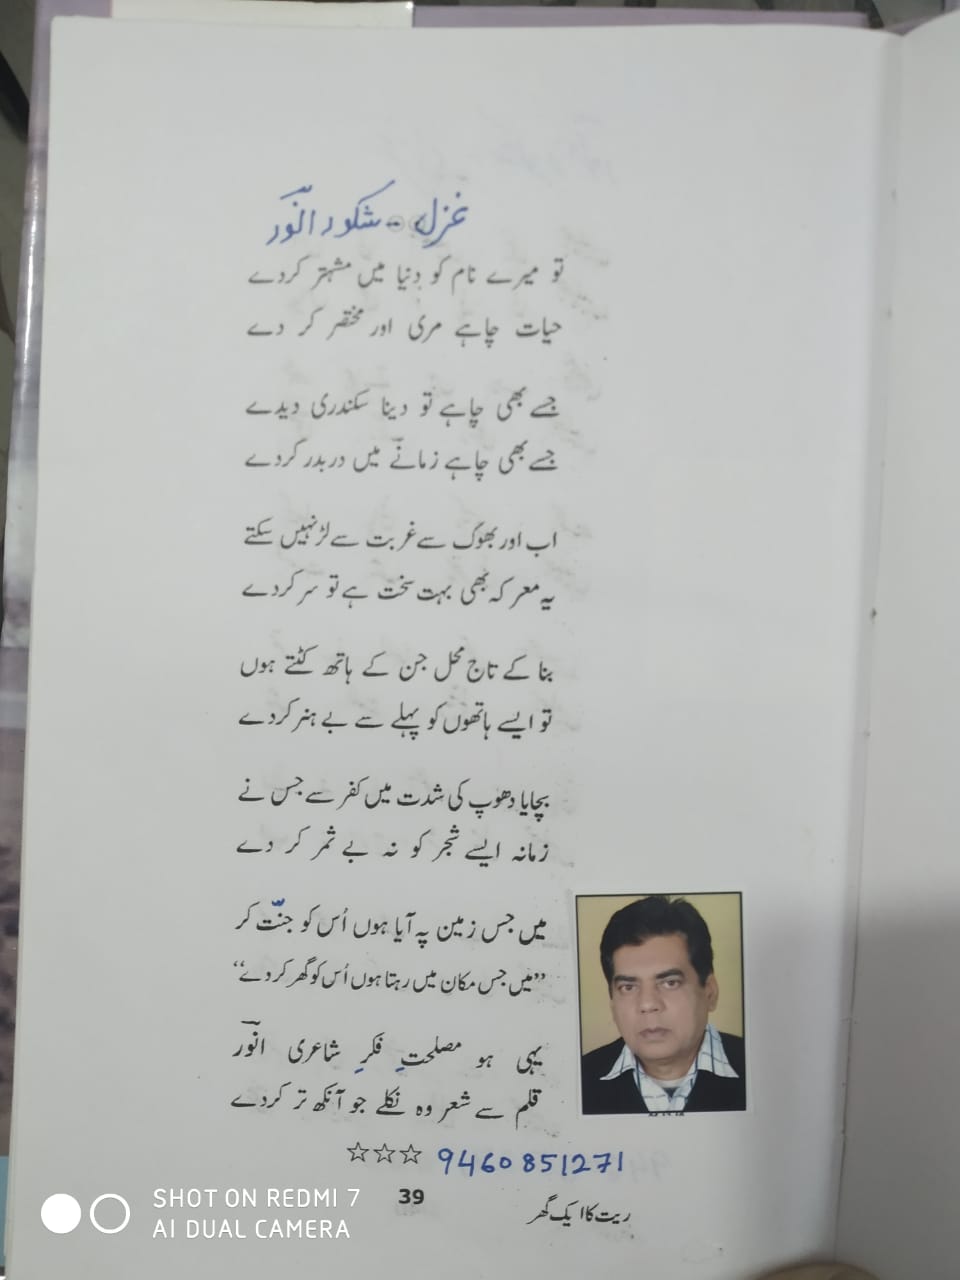 غزل ـ شکور انور
تو میرے نام کو دنیا میں مشتہر کردے
حیات چاہے مری اور مختصر کر دے
جسے بھی چاہے تو دینا سکندری دیدے
جسے بھی چاہے زمانے میں دربدر کردے
اب اور بھوک سے غربت سے لڑ نہیں سکتے
یہ معرکہ بھی بہت سخت ہے تو سر کردے
بنا کے تاج محل جن کے ہاتھ کٹتے ہوں
تو ایسے ہاتھوں کو پہلے سے بے ہنر کردے
بچایا دھوپ کی شدت میں کفر سے جس نے
زمانہ ایسے شجر کو نہ بے ثمر کر دے
میں جس زمین پہ آیا ہوں اُس کو جنّت کر
”میں جس مکان میں رہتا ہوں اُس کو گھر کردے“
یہی ہو مصلحتِ فکرِ شاعری انور
قلم سے شعر وہ نکلے جو آنکھ تر کردے
☆☆☆ 9460851271
39
ریت کا ایک گھر
SHOT ON REDMI 7
AI DUAL CAMERA